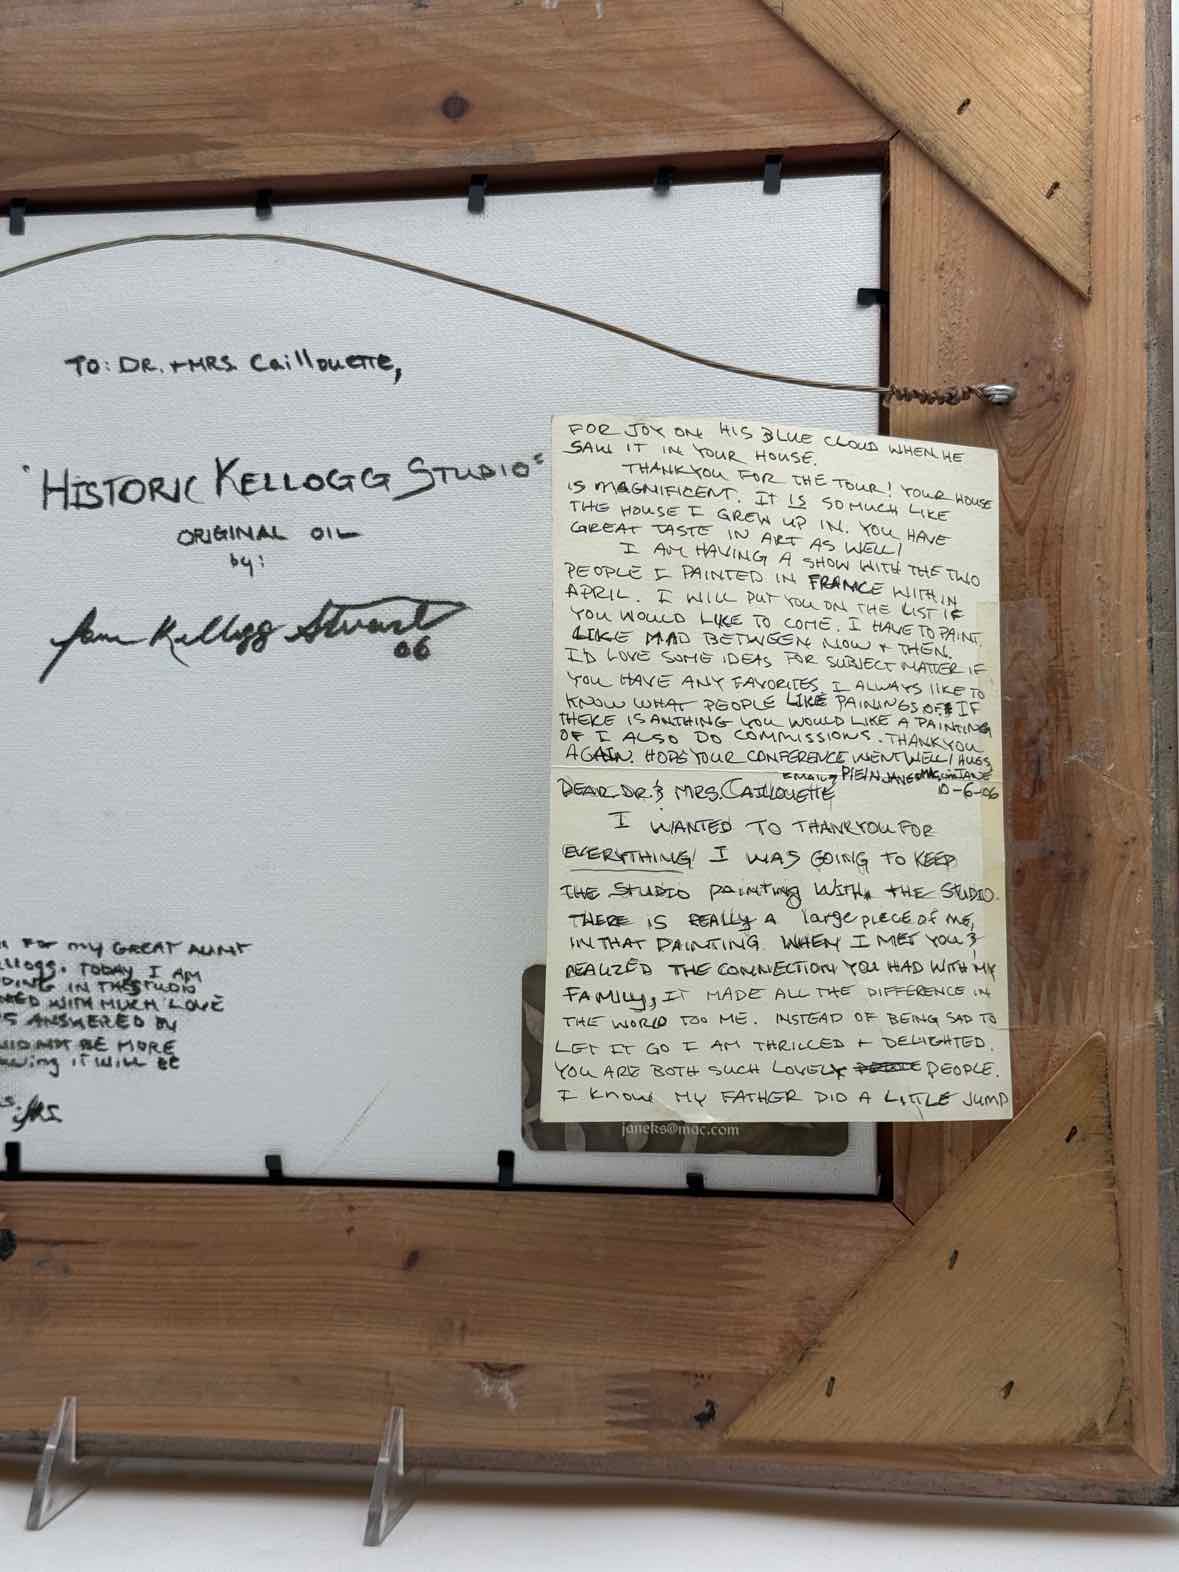 TO: DR. + MRS. Caillouette,
"HISTORIC KELLOGG STUDIO"
ORIGINAL OIL
by:
Jane Kellogg Stuart
06
FOR MY GREAT AUNT
KELLOGG. TODAY I AM
IN THE STUDIO
WITH MUCH LOVE
ANSWERED BY
NOT BE MORE
IT WILL BE
FOR JOY ON HIS BLUE CLOUD WHEN HE
SAW IT IN YOUR HOUSE.
THANKYOU FOR THE TOUR! YOUR HOUSE
IS MAGNIFICENT. IT IS SO MUCH LIKE
THE HOUSE I GREW UP IN. YOU HAVE
GREAT TASTE IN ART AS WELL!
I AM HAVING A SHOW WITH THE TWO
PEOPLE I PAINTED IN FRANCE WITH IN
APRIL. I WILL PUT YOU ON THE LIST IF
YOU WOULD LIKE TO COME. I HAVE TO PAINT
LIKE MAD BETWEEN NOW + THEN.
I'D LOVE SOME IDEAS FOR SUBJECT MATTER IF
YOU HAVE ANY FAVORITES. I ALWAYS LIKE TO
KNOW WHAT PEOPLE LIKE PAININGS OF. IF
THERE IS ANTHING YOU WOULD LIKE A PAINTING
OF I ALSO DO COMMISSIONS. THANKYOU
AGAIN. HOPE YOUR CONFERENCE WENT WELL! HUGS,
EMAIL JANE
DEAR DR. & MRS. CAILLOUETTE 10-6-06
I WANTED TO THANKYOU FOR
EVERYTHING! I WAS GOING TO KEEP
THE STUDIO PAINTING WITH THE STUDIO.
THERE IS REALLY A large piece of ME,
IN THAT PAINTING. WHEN I MET YOU &
REALIZED THE CONNECTION YOU HAD WITH MY
FAMILY, IT MADE ALL THE DIFFERENCE IN
THE WORLD TOO ME. INSTEAD OF BEING SAD TO
LET IT GO I AM THRILLED + DELIGHTED.
YOU ARE BOTH SUCH LOVELY PEOPLE.
I KNOW MY FATHER DID A LITTLE JUMP
janeks@mac.com